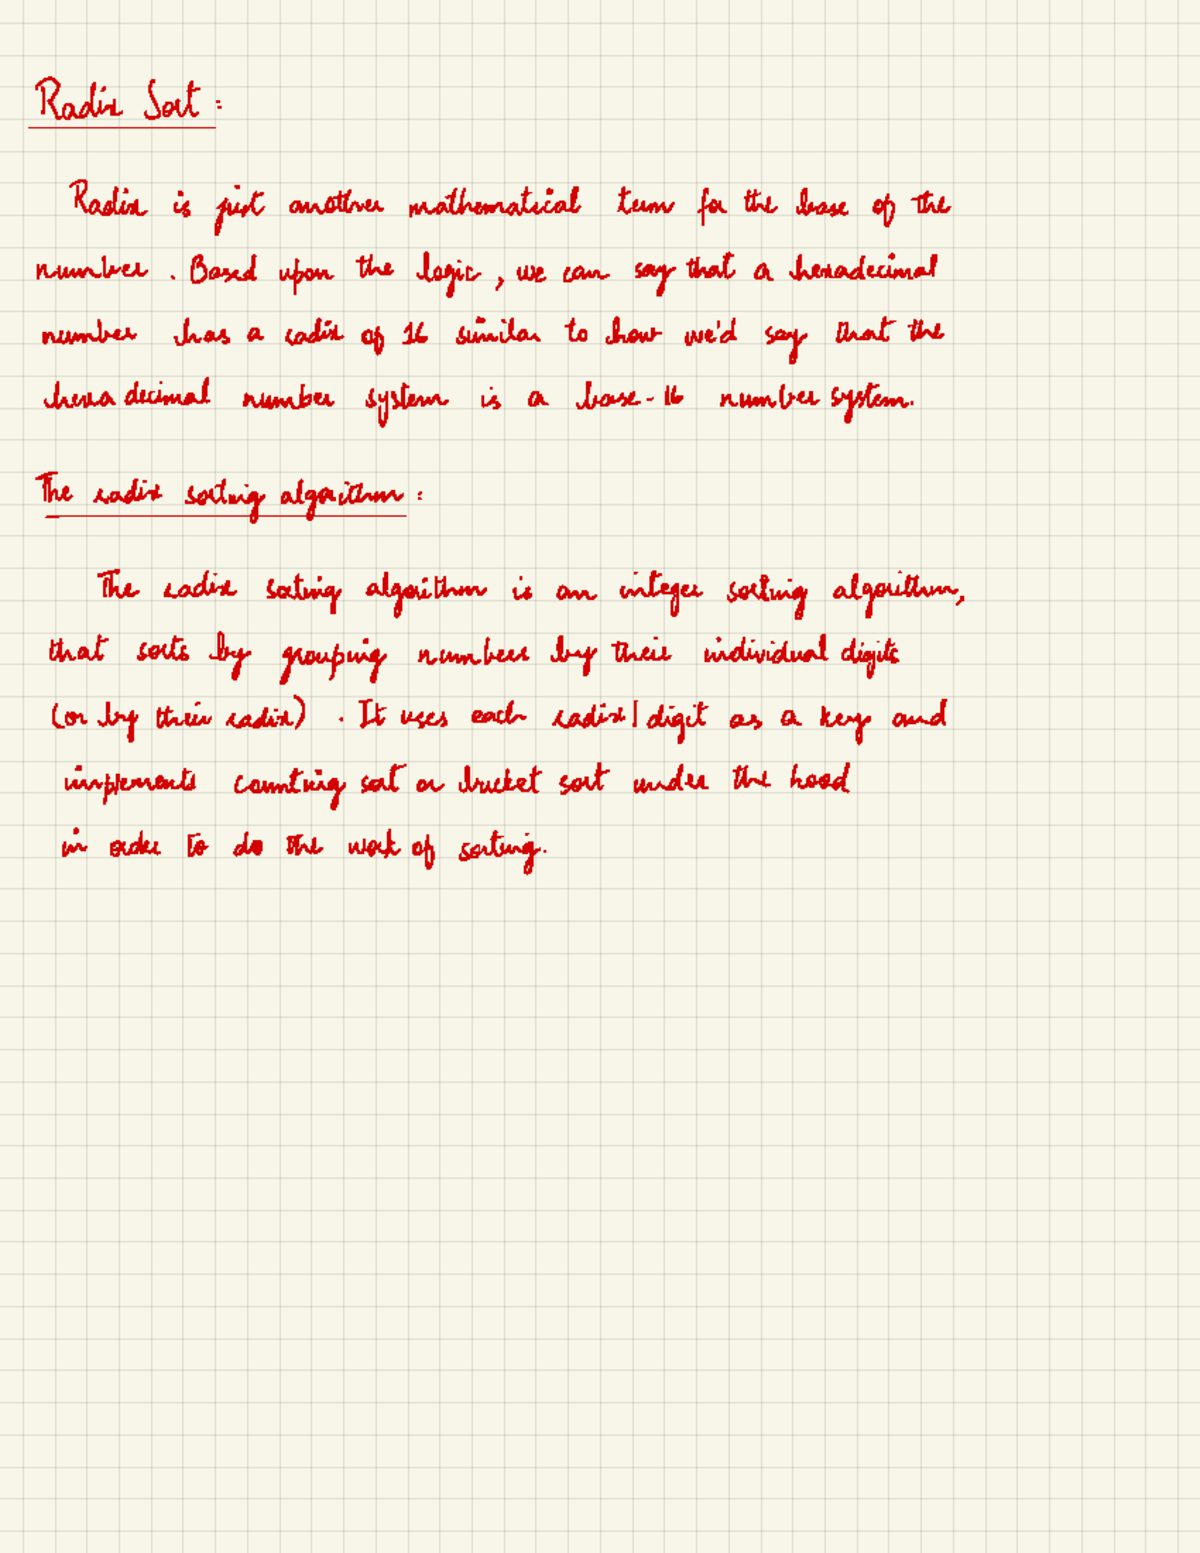 Radix Sort :
Radix is just another mathematical term for the base of the
number . Based upon the logic , we can say that a hexadecimal
number has a radix of 16 similar to how we'd say that the
hexadecimal number system is a base-16 number system.
The radix sorting algorithm :
The radix sorting algorithm is an integer sorting algorithm,
that sorts by grouping numbers by their individual digits
(or by their radix) . It uses each radix/digit as a key and
implements counting sort or bucket sort under the hood
in order to do the work of sorting.